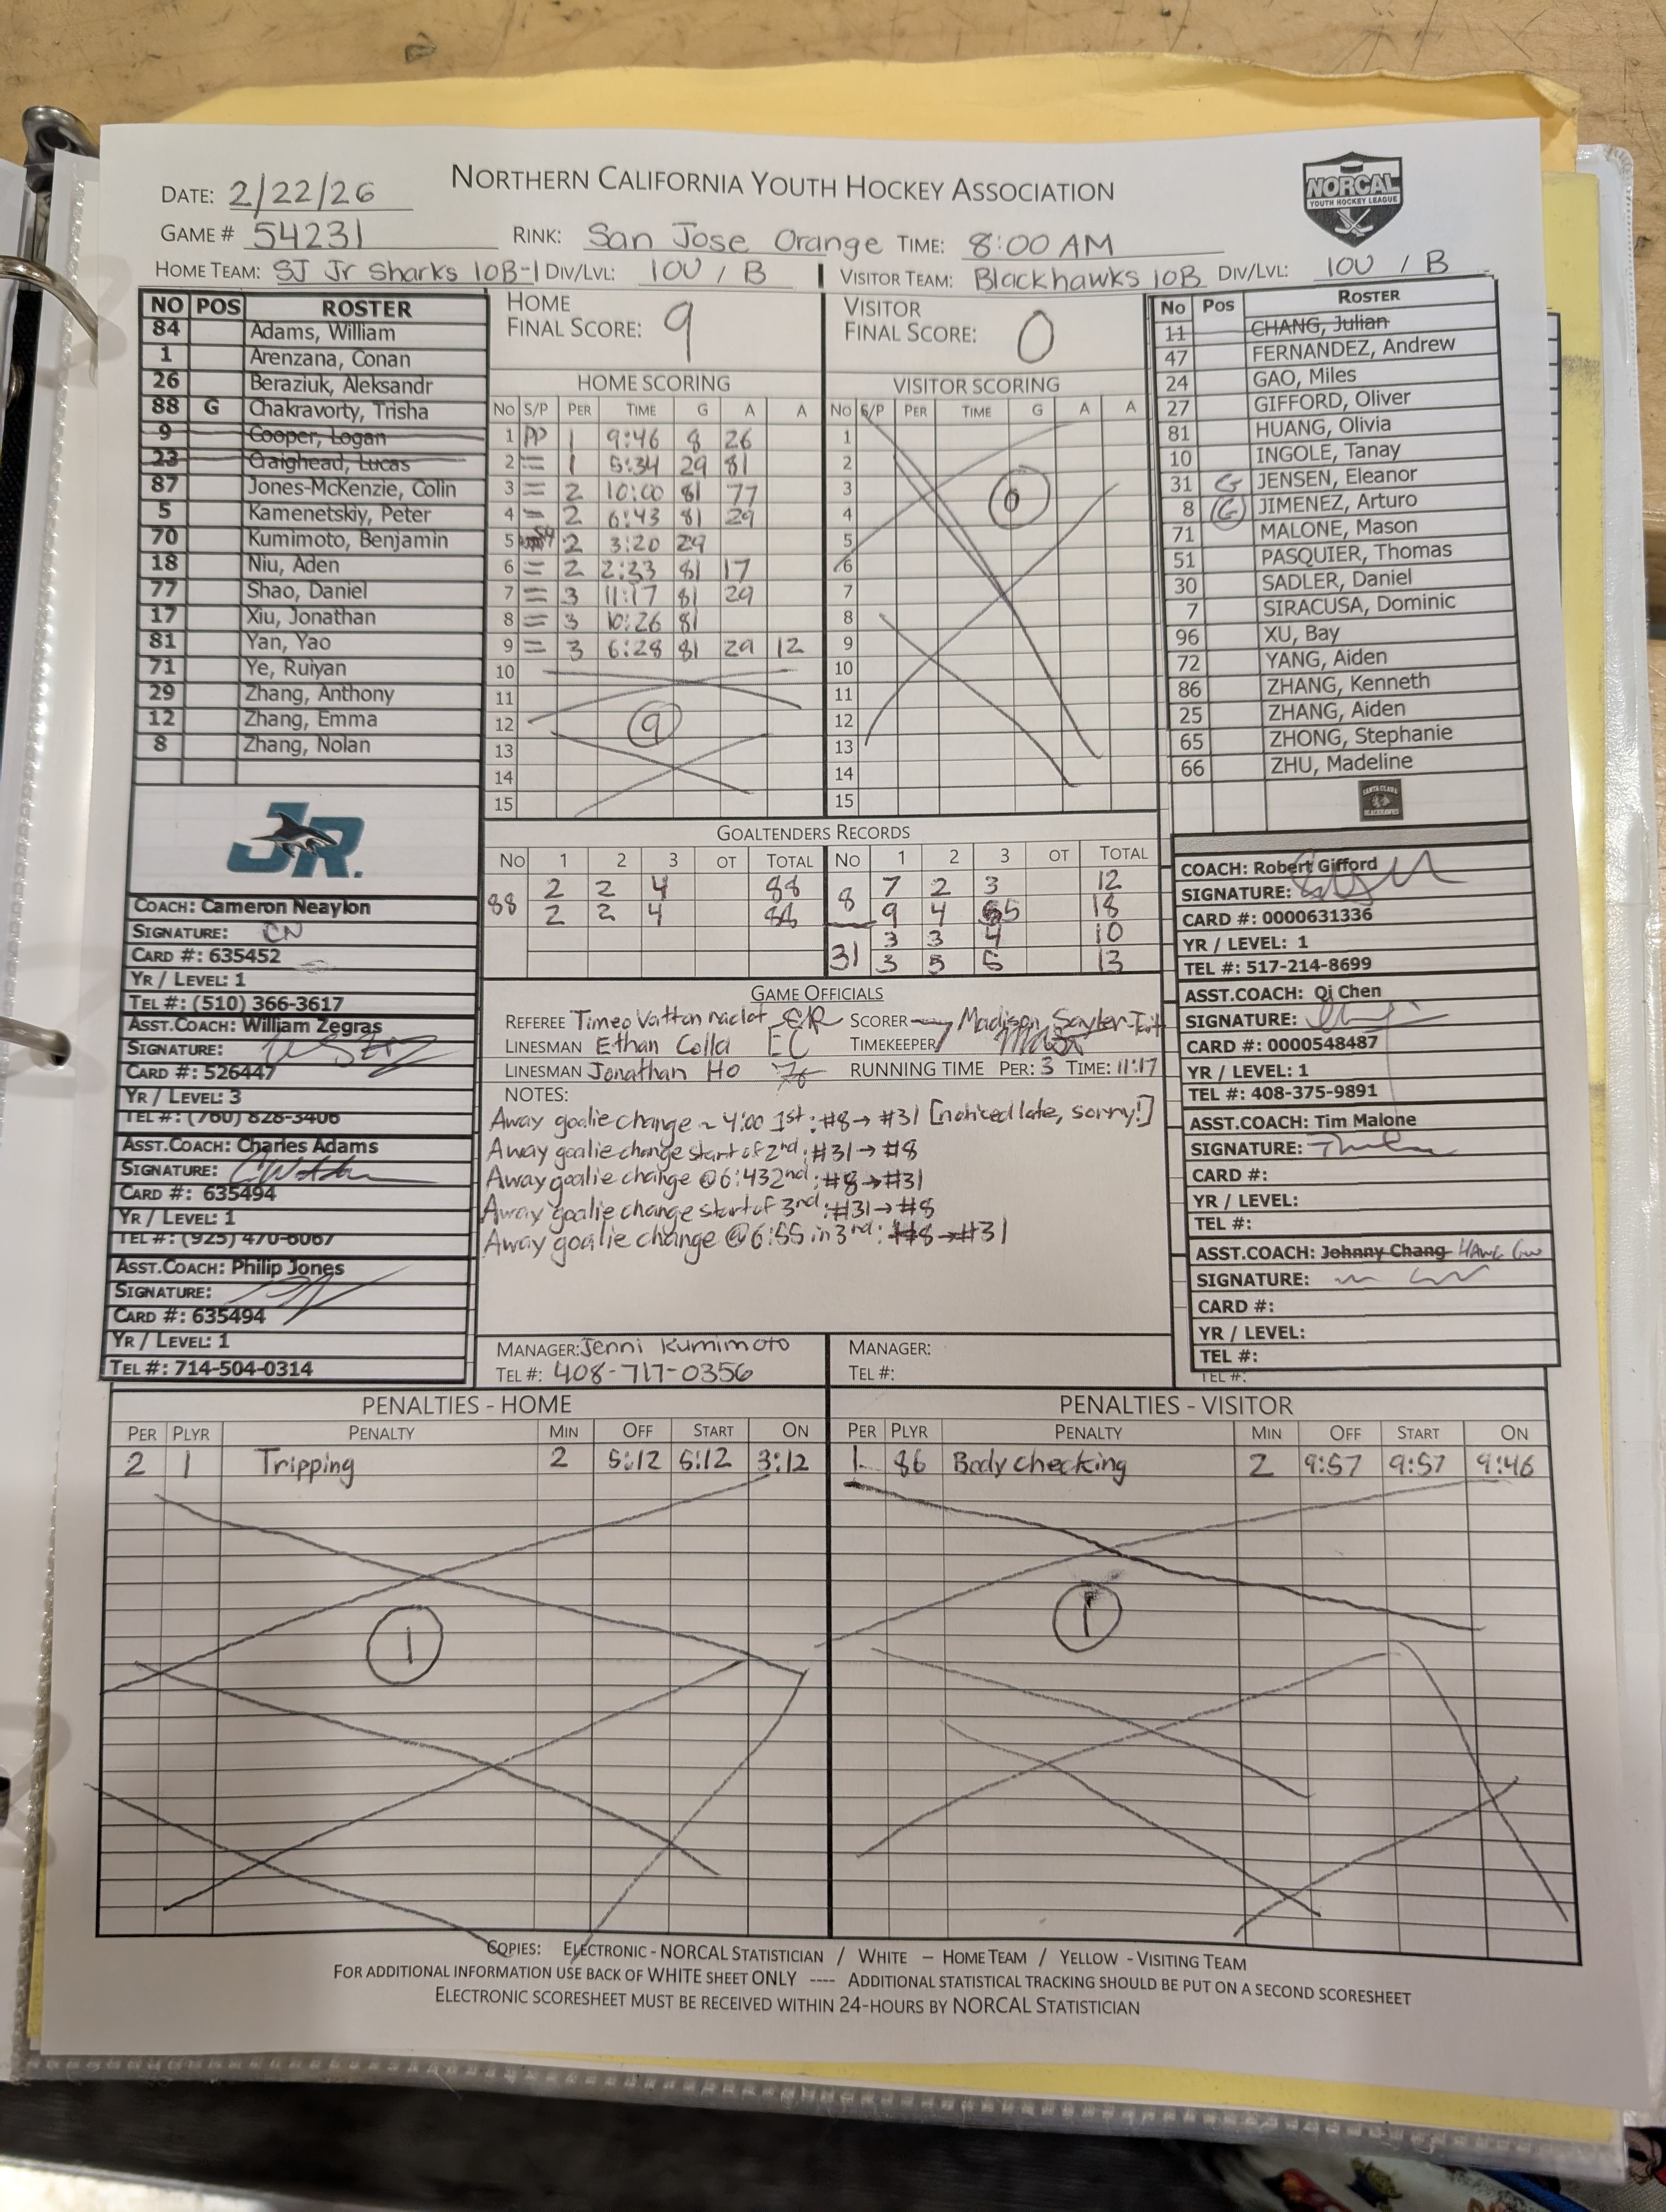 NORTHERN CALIFORNIA YOUTH HOCKEY ASSOCIATION
NORCAL
YOUTH HOCKEY LEAGUE
DATE: 2/22/26
GAME # 54231 RINK: San Jose Orange TIME: 8:00 AM
HOME TEAM: SJ Jr Sharks 10B-1 DIV/LVL: 10U / B VISITOR TEAM: Blackhawks 10B DIV/LVL: 10U / B
NO POS ROSTER
84 Adams, William
1 Arenzana, Conan
26 Beraziuk, Aleksandr
88 G Chakravorty, Trisha
9 Cooper, Logan
23 Craighead, Lucas
87 Jones-McKenzie, Colin
5 Kamenetskiy, Peter
70 Kumimoto, Benjamin
18 Niu, Aden
77 Shao, Daniel
17 Xiu, Jonathan
81 Yan, Yao
71 Ye, Ruiyan
29 Zhang, Anthony
12 Zhang, Emma
8 Zhang, Nolan
JR.
COACH: Cameron Neaylon
SIGNATURE: CN
CARD #: 635452
YR / LEVEL: 1
TEL #: (510) 366-3617
ASST.COACH: William Zegras
SIGNATURE:
CARD #: 526447
YR / LEVEL: 3
TEL #: (760) 828-3406
ASST.COACH: Charles Adams
SIGNATURE:
CARD #: 635494
YR / LEVEL: 1
TEL #: (925) 470-6067
ASST.COACH: Philip Jones
SIGNATURE:
CARD #: 635494
YR / LEVEL: 1
TEL #: 714-504-0314
HOME
FINAL SCORE: 9
VISITOR
FINAL SCORE: 0
HOME SCORING
NO S/P PER TIME G A A
1 PP 1 9:46 8 26
2 = 1 5:34 29 81
3 = 2 10:00 81 77
4 = 2 6:43 81 29
5 2 3:20 29
6 = 2 2:33 81 17
7 = 3 11:17 81 29
8 = 3 10:26 81
9 = 3 6:28 81 29 12
10
11
12
13
14
15
9
VISITOR SCORING
NO S/P PER TIME G A A
1
2
3
4
5
6
7
8
9
10
11
12
13
14
15
0
GOALTENDERS RECORDS
NO 1 2 3 OT TOTAL NO 1 2 3 OT TOTAL
88 2 2 4 8 7 2 3 12
2 2 4 9 4 5 18
31 3 3 4 10
3 5 5 13
GAME OFFICIALS
REFEREE Timeo SCORER Madison
LINESMAN Ethan Colla EC TIMEKEEPER
LINESMAN Jonathan Ho RUNNING TIME PER: 3 TIME: 11:17
NOTES:
Away goalie change ~ 4:00 1st: #8→ #31 [noticed late, sorry!]
Away goalie change start of 2nd: #31→ #8
Away goalie change @6:43 2nd: #8→#31
Away goalie change start of 3rd: #31→#8
Away goalie change @6:55 in 3rd: #8→#31
MANAGER: Jenni Kumimoto
TEL #: 408-717-0356
MANAGER:
TEL #:
No Pos ROSTER
11 CHANG, Julian
47 FERNANDEZ, Andrew
24 GAO, Miles
27 GIFFORD, Oliver
81 HUANG, Olivia
10 INGOLE, Tanay
31 G JENSEN, Eleanor
8 G JIMENEZ, Arturo
71 MALONE, Mason
51 PASQUIER, Thomas
30 SADLER, Daniel
7 SIRACUSA, Dominic
96 XU, Bay
72 YANG, Aiden
86 ZHANG, Kenneth
25 ZHANG, Aiden
65 ZHONG, Stephanie
66 ZHU, Madeline
SANTA CLARA
BLACKHAWKS
COACH: Robert Gifford
SIGNATURE:
CARD #: 0000631336
YR / LEVEL: 1
TEL #: 517-214-8699
ASST.COACH: Qi Chen
SIGNATURE:
CARD #: 0000548487
YR / LEVEL: 1
TEL #: 408-375-9891
ASST.COACH: Tim Malone
SIGNATURE:
CARD #:
YR / LEVEL:
TEL #:
ASST.COACH: Johnny Chang
SIGNATURE:
CARD #:
YR / LEVEL:
TEL #:
TEL #:
PENALTIES - HOME
PER PLYR PENALTY MIN OFF START ON
2 1 Tripping 2 5:12 5:12 3:12
1
PENALTIES - VISITOR
PER PLYR PENALTY MIN OFF START ON
1 86 Body checking 2 9:57 9:57 9:46
1
COPIES: ELECTRONIC - NORCAL STATISTICIAN / WHITE – HOME TEAM / YELLOW - VISITING TEAM
FOR ADDITIONAL INFORMATION USE BACK OF WHITE SHEET ONLY ---- ADDITIONAL STATISTICAL TRACKING SHOULD BE PUT ON A SECOND SCORESHEET
ELECTRONIC SCORESHEET MUST BE RECEIVED WITHIN 24-HOURS BY NORCAL STATISTICIAN